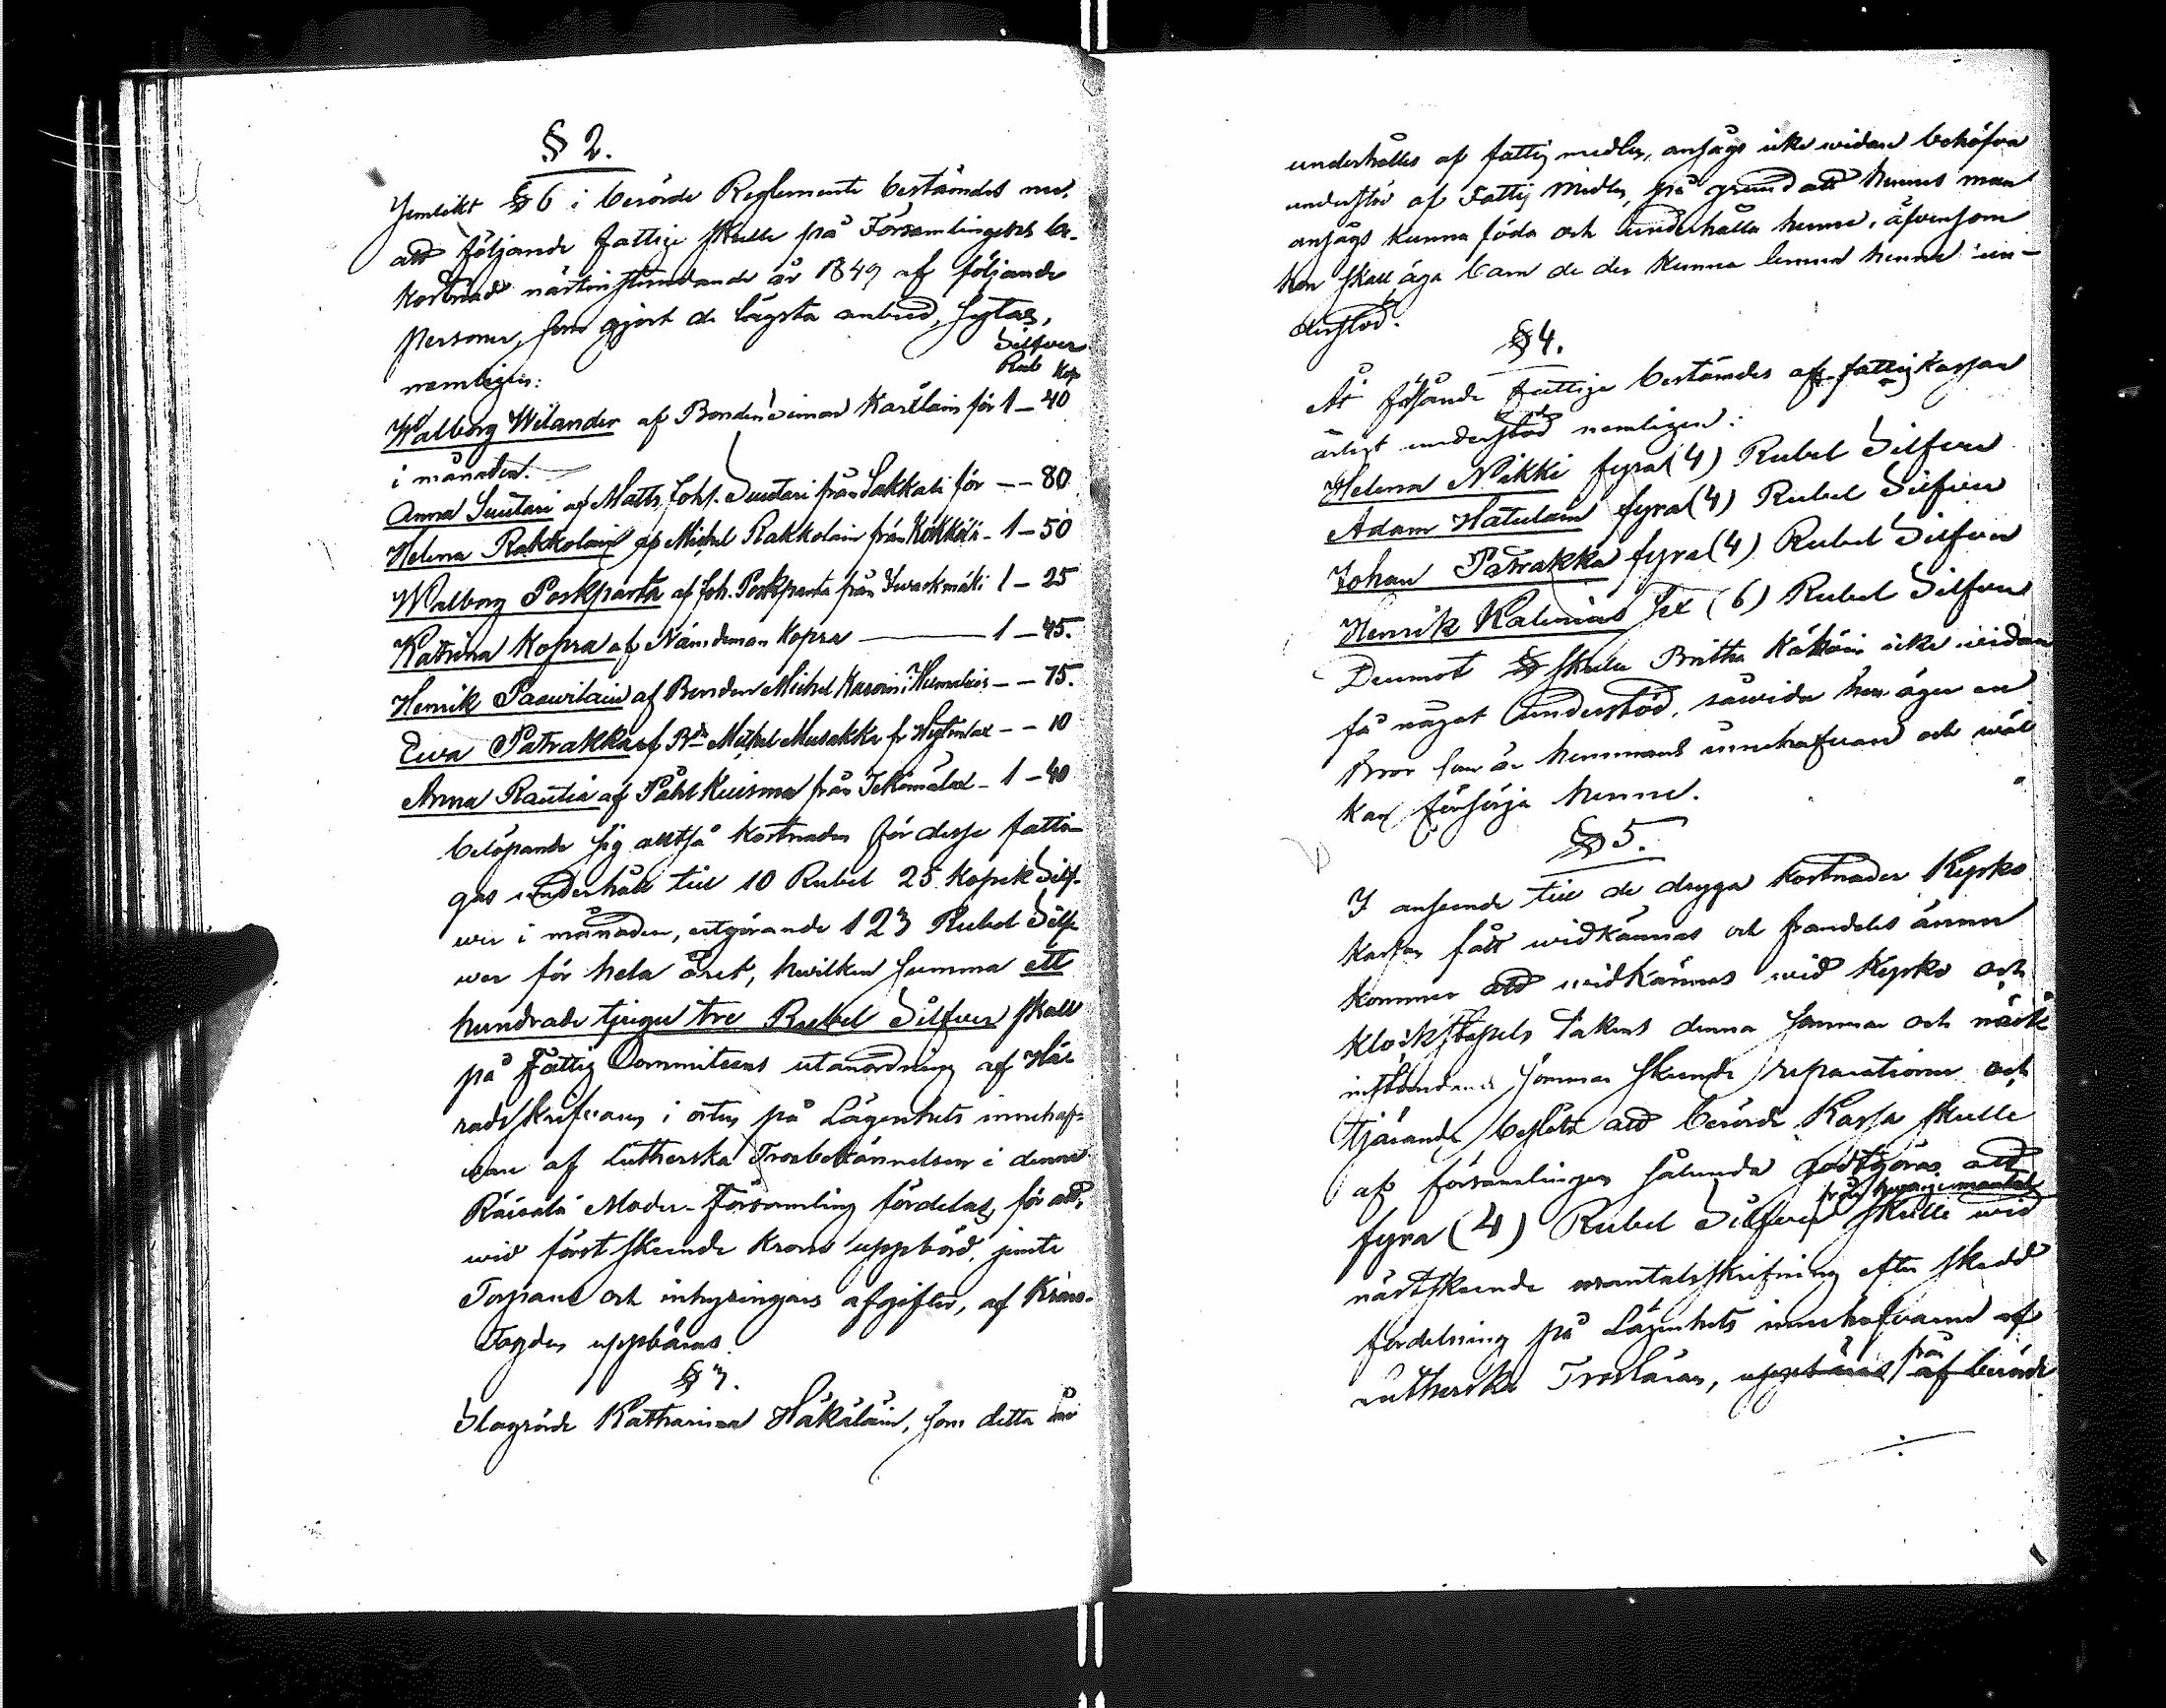 § 2.
Jemlikt § 6 i berörde Reglemente bestämdes nu,
att följande fattige skulle på Församlingens be-
kostnad nästinstundande år 1849 af följande
Personer, som gjort de lägsta anbud, sytas,
nemligen: Silfver
Rub Kop
Walborg Wilander af Bonden Simon Karilain för 1 – 40
i månaden.
Anna Suutari af Matts Johs. Suutari från Sakkali för – – 80
Helena Rakkolain af Michel Rakkolain från Kökköli – 1 – 50
Walborg Poskiparta af Joh. Poskiparta från 1 – 25
Katrina Kopra af Nämdeman Kopra — 1 – 45.
Henrik Paawilain af Bonden Michel – – 75.
Ewa Patrakka af Bn Michel Musakka fr – – 10
Anna Rautia af Påhl Kuisma från – 1 – 40
belöpande sig alltså kostnaden för desse fatti-
gas underhåll till 10 Rubel 25 Kopek Silf-
wer i månaden, utgörande 123 Rubel Silf-
wer för hela året, hwilken summa ett
hundrade tjugu tre Rubel Silfver skall
på Fattig Committeens utanordning af Hä-
radsskrifvaren i orten på Lägenhets innehaf-
ware af Lutherska Trosbekännelsen i denna
Räisälä Moder-Församling fördelas, för att,
wid först skeende Krono uppbörd, jemte
Torpares och inhysingars afgifter, af Krono-
fogden uppbäras.
§ 3.
Ilagrörde Katharina Häkäläin, som detta år
underhålles af fattig medlen, ansågs icke widare behöfva
understöd af Fattig Medlen, på grund att hennes man
ansågs kunna föda och underhålla henne, äfvensom
hon skall äga barn de der kunna lemna henne un-
derstöd.
§ 4.
Åt följande fattige bestämdes af fattigkassan
årligt understöd nemligen:
Helena Nikki fyra (4) Rubel Silfver
Adam Hatulain fyra (4) Rubel Silfver
Johan Patrakka fyra (4) Rubel Silfver
Henrik Sex (6) Rubel Silfver
Deremot skulle Britha icke widare
få något understöd, såwida hon äger en
bror som är hemmans innehafvare och wäl
kan försörja henne.
§ 5.
I anseende till de dryga kostnader Kyrko
kassan fått widkännas och framdeles ännu
kommer att widkännas wid Kyrko och
klockstapels takens denna sommar och näst
instundande sommar skeende reparationer och
tjärande, beslöts att berörde Kassa skulle
af församlingen sålunda godtgöras, att
fyra (4) Rubel Silfver från hwarje mantal skulle wid
nästskeende mantalsskrifning efter skedd
fördelning på Lägenhets innehafvarne af
Lutherska Trosläran, uppbäras från af berörde